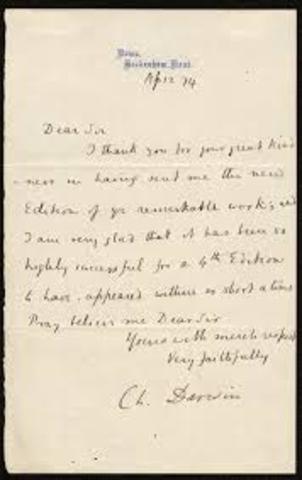 Down,
Beckenham, Kent.
Ap 12 74
Dear Sir
I thank you for your great kind
-ness in having sent me the new
Edition of yr remarkable work; and
I am very glad that it has been so
highly successful for a 4th Edition
to have appeared within so short a time
Pray believe me Dear Sir
Yours with much respect
Very faithfully
Ch. Darwin